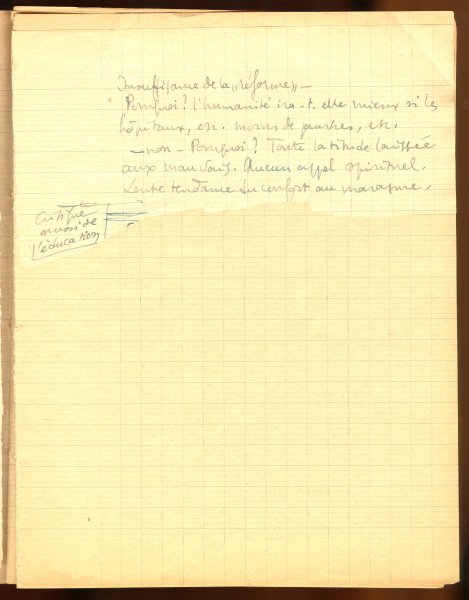 Insuffisance de la "réforme" –
Pourquoi? l'humanité ira-t-elle mieux si les
hôpitaux, etc. moins de pauvres, etc.
– non – Pourquoi? Toute latitude laissée
aux mauvais. Aucun appel spirituel.
Lente tendance du confort au marasme.
Critique
aussi de
l'éducation